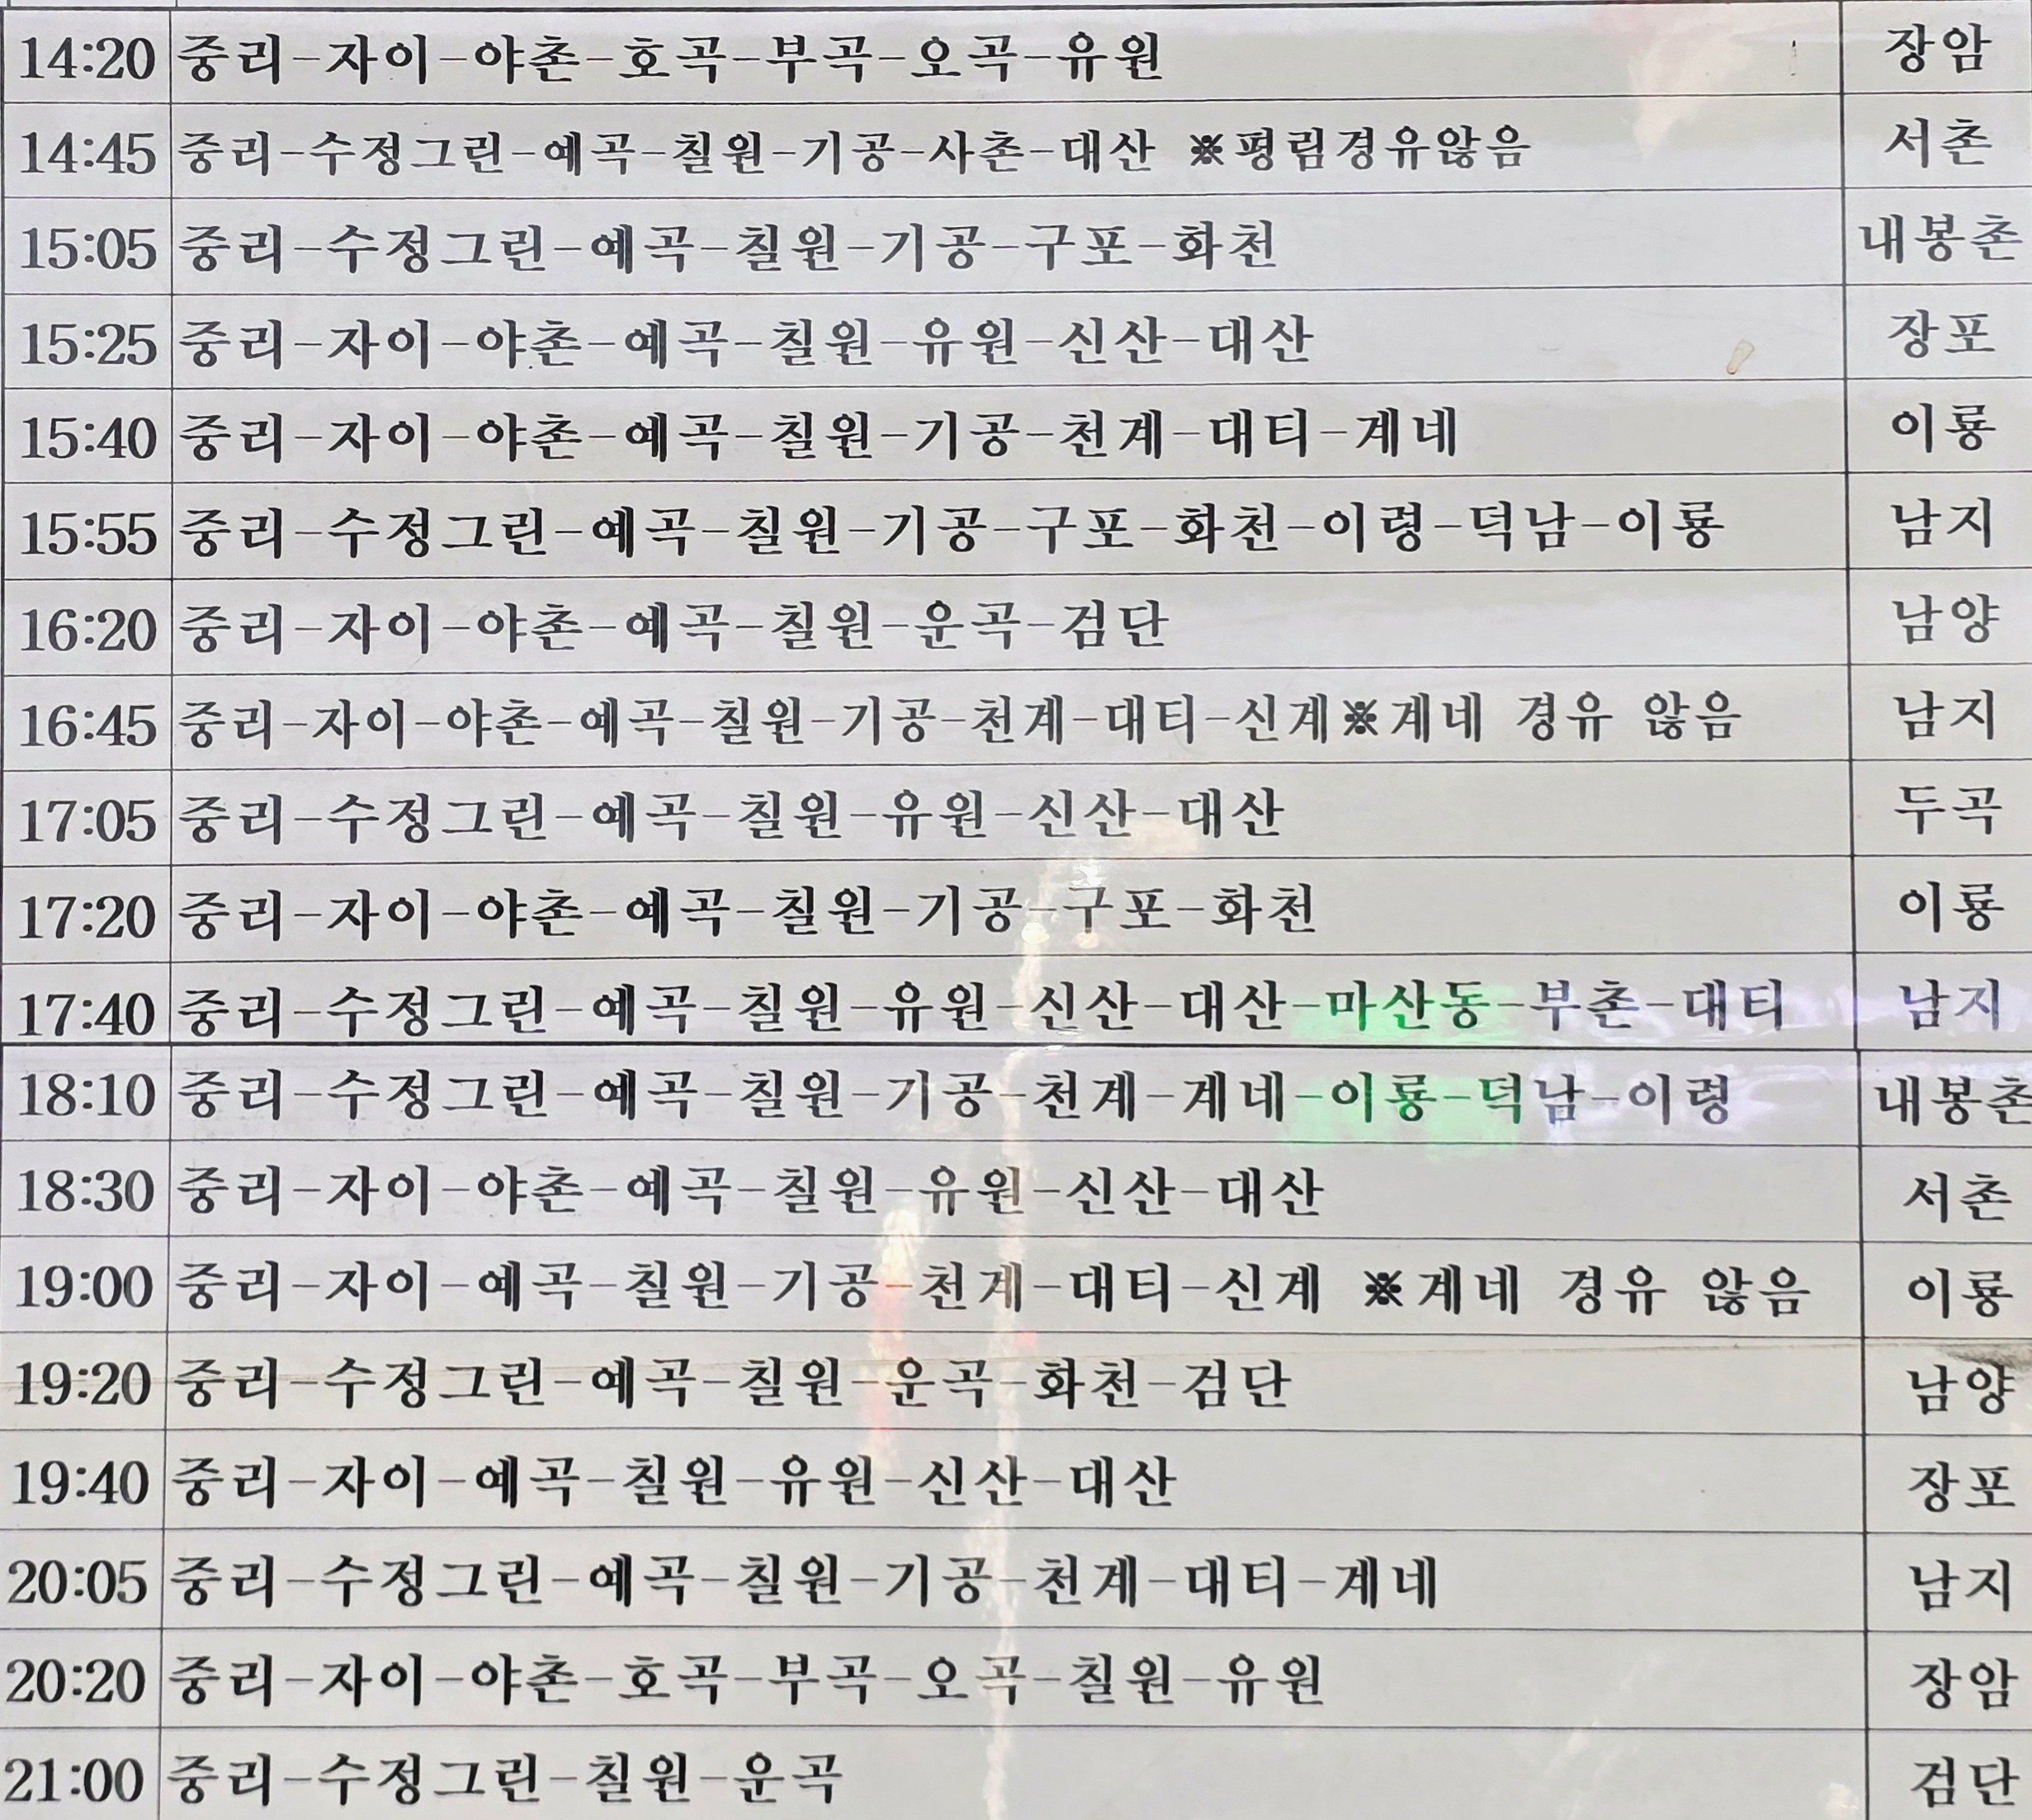 14:20 중리-자이-야촌-호곡-부곡-오곡-유원 장암
14:45 중리-수정그린-예곡-칠원-기공-사촌-대산 ※평림경유않음 서촌
15:05 중리-수정그린-예곡-칠원-기공-구포-화천 내봉촌
15:25 중리-자이-야촌-예곡-칠원-유원-신산-대산 장포
15:40 중리-자이-야촌-예곡-칠원-기공-천계-대티-계네 이룡
15:55 중리-수정그린-예곡-칠원-기공-구포-화천-이령-덕남-이룡 남지
16:20 중리-자이-야촌-예곡-칠원-운곡-검단 남양
16:45 중리-자이-야촌-예곡-칠원-기공-천계-대티-신계※계네 경유 않음 남지
17:05 중리-수정그린-예곡-칠원-유원-신산-대산 두곡
17:20 중리-자이-야촌-예곡-칠원-기공-구포-화천 이룡
17:40 중리-수정그린-예곡-칠원-유원-신산-대산-마산동-부촌-대티 남지
18:10 중리-수정그린-예곡-칠원-기공-천계-계네-이룡-덕남-이령 내봉촌
18:30 중리-자이-야촌-예곡-칠원-유원-신산-대산 서촌
19:00 중리-자이-예곡-칠원-기공-천계-대티-신계 ※계네 경유 않음 이룡
19:20 중리-수정그린-예곡-칠원-운곡-화천-검단 남양
19:40 중리-자이-예곡-칠원-유원-신산-대산 장포
20:05 중리-수정그린-예곡-칠원-기공-천계-대티-계네 남지
20:20 중리-자이-야촌-호곡-부곡-오곡-칠원-유원 장암
21:00 중리-수정그린-칠원-운곡 검단